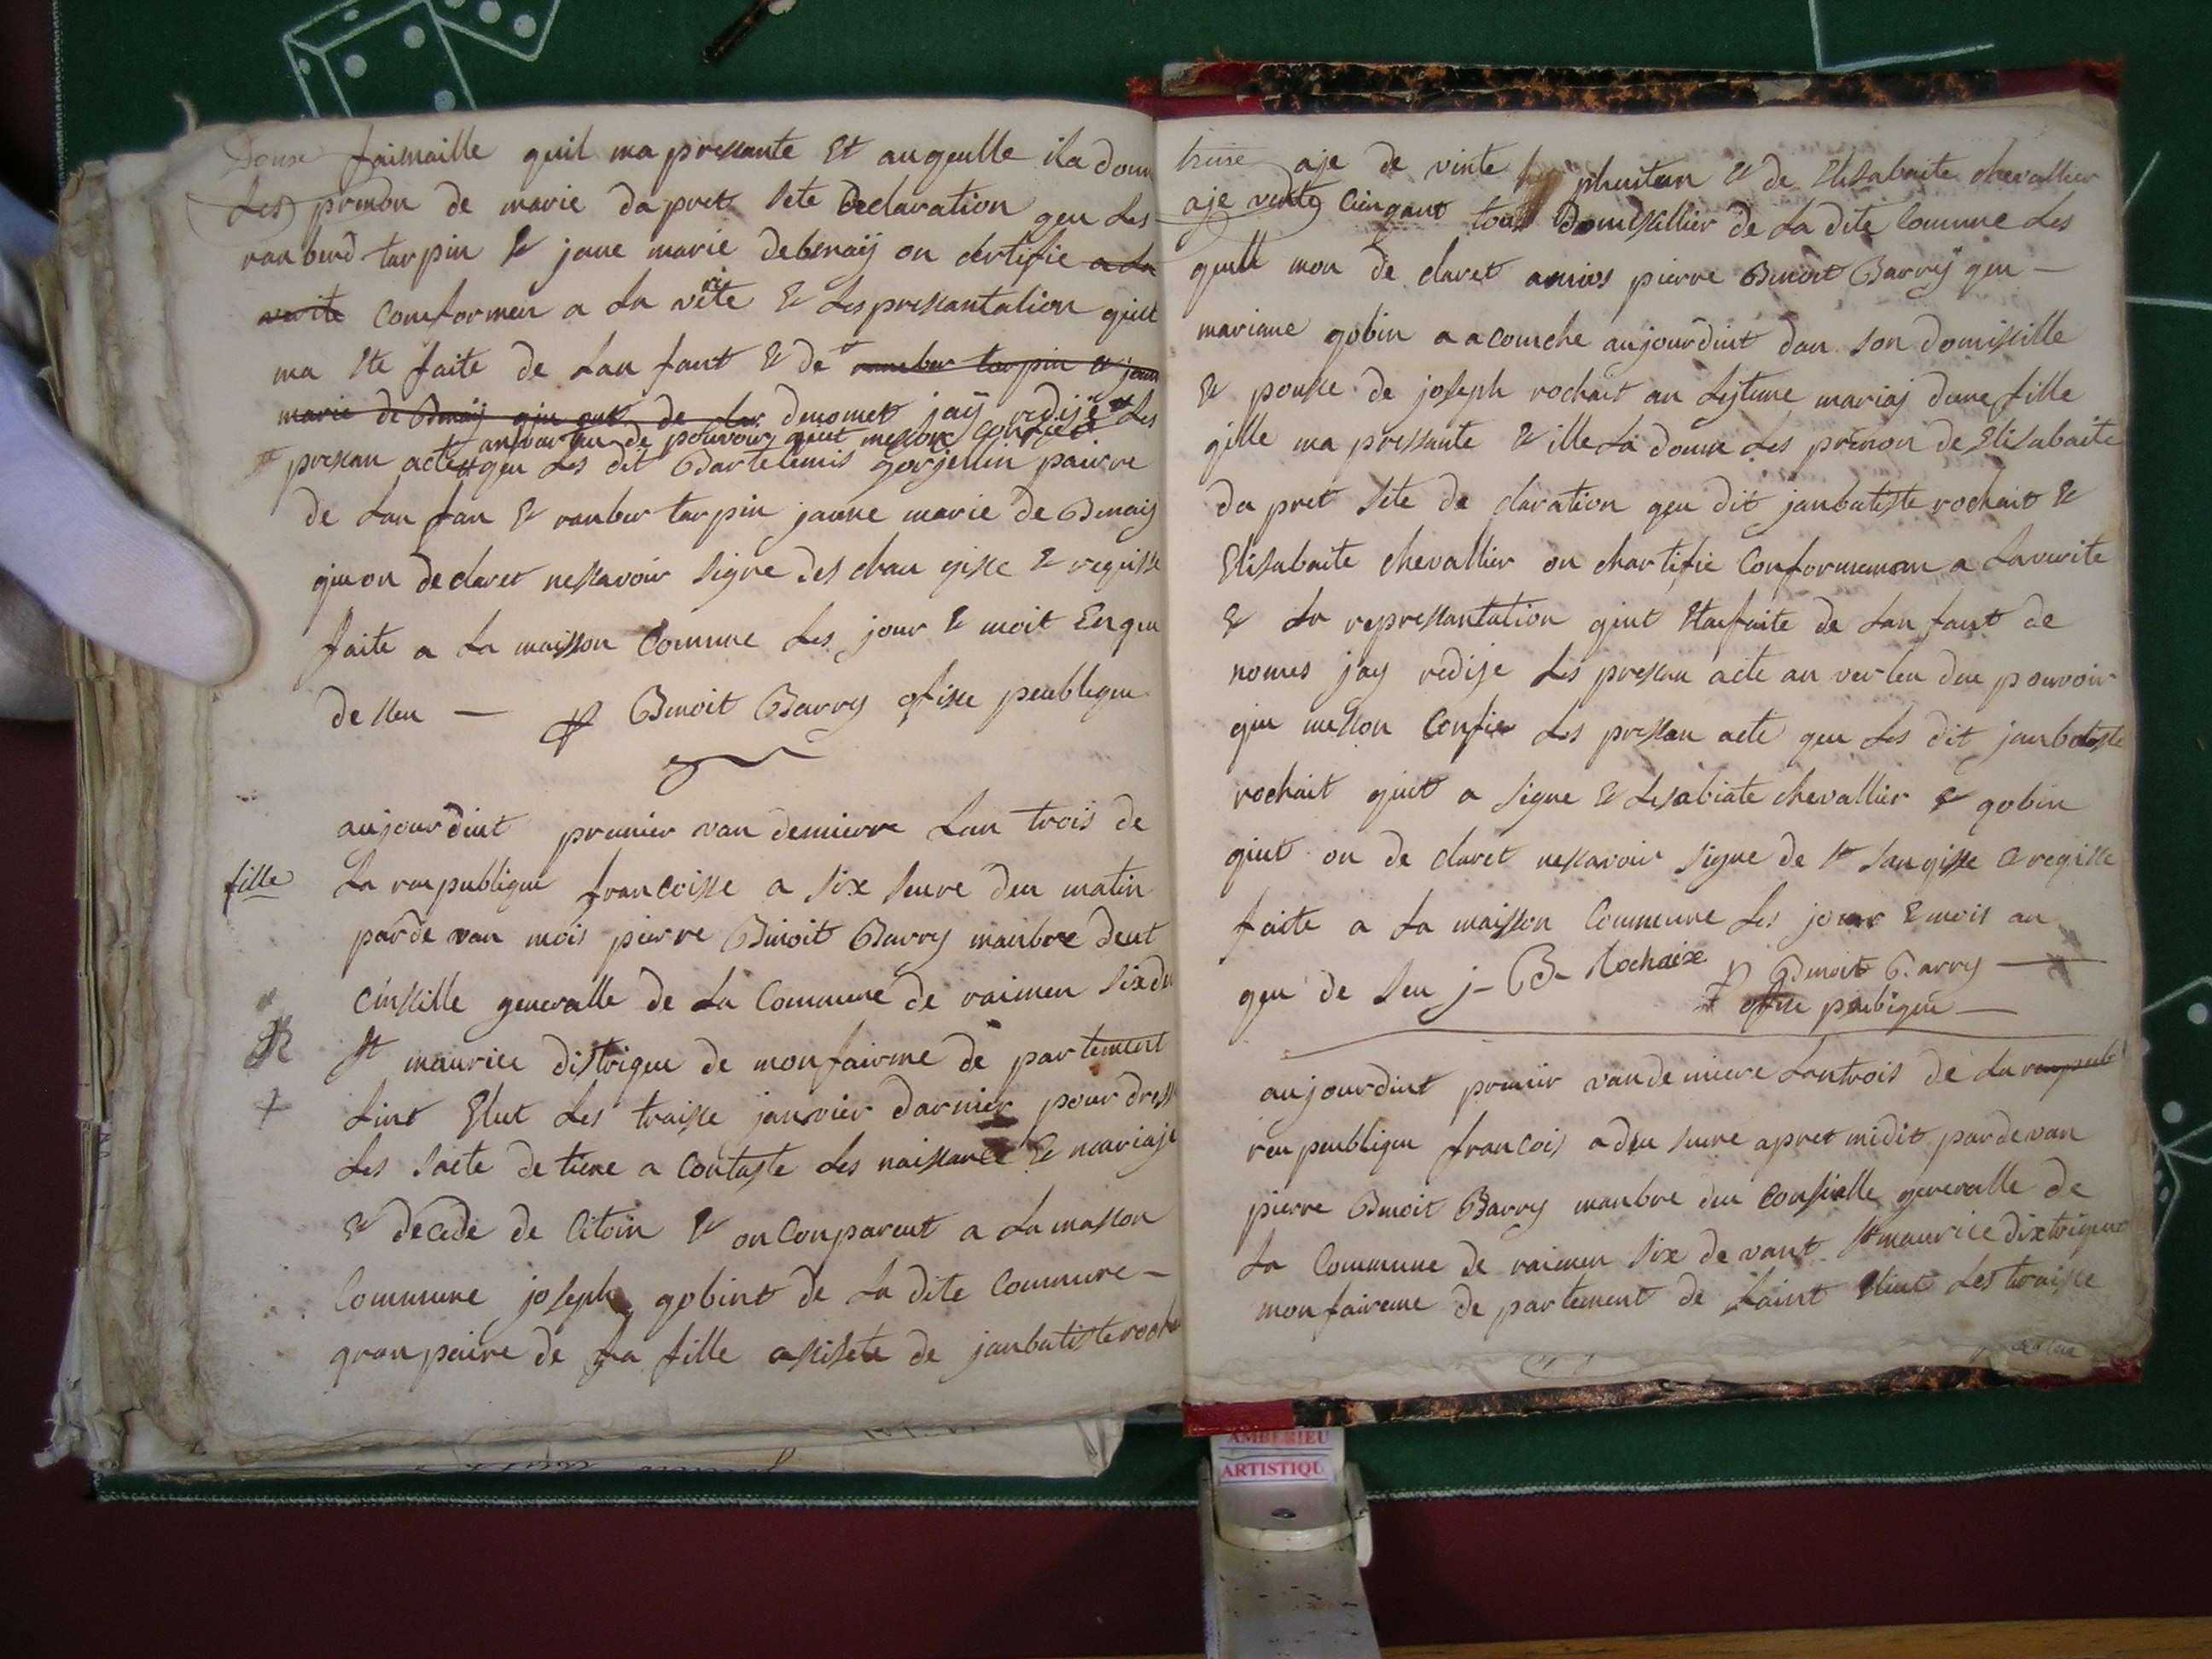 Donse faimaille quil ma pressante Et augeulle ila donn
Les prenon de marie dapret sete Declaration geu Les
ranberd tarpin & jane marie debenaÿ on certifie a La
verite conformen a La verite & Les pressantalion quit
ma Ete faite de Lan fant & de rambert tarpin & jean
marie de Benaÿ qiu ont de clar denomet jaÿ redijé Les
anvartu de pouvoir quit messon confiet
pressan acte geu Les dit Bartelemis gorjenin pairre
de Lan fan & ranber tarpin janne marie de Benaij
qiu on declaret nessavoir signe des chan gisse & regisse
faite a La maisson Comune Les jour & moit En geu
de sseu — P Benoit Barry ofisse peublique
aujourdiut premier van demierre Lan trois de
fille
La reupublique francoisse a six seure deu matin
parde van mois pierre Binoit Barry manbre deut
Cinssille generalle de La Commune de raimeu sixdu
St maurice distriqeu de monfairme de partement
Lint Elut Les traisse janvier darnier pour dress
Les sacte de tiene a contaste Les naissance & mariaje
& décede de Citoin & on Conpareut a La masson
Commune joseph gobint de La dite Commune —
granpaire de La fille assisete de janbatiste roch
trense aje de vinte phuitan & de Elisabaite chevallier
aje vente cinqant tout Domissillier de La dite Comune Les
quell mon de claret amios pierre Benoit Barrÿ geu —
marianne gobin a acouche aujourdiut dan son domissille
& pousse de joseph rochait an Lejtume mariaj dune fille
gille ma pressante & ille La donne Les prenon de Elisabaite
da pret sete de claration geu dit janbatiste rochait &
Elisabaite chevallier on chartifie Conformeman a Laverite
& La repressantation qiut Etaifaite de Lan fant de
nomes jay redije Les pressan acte an verteu deu pouvoir
qiu messon Confier Les pressan acte geu Les dit janbatiste
rochait qiut a signe & Lesabiate chevallier & gobin
qiut on de claret nessavoir signe de st sangisse & regisse
faite a La maisson Commeune Les jour & mois an
geu de seu j- B- Rochaix P Benoit Barry —
ofisse peubigeu —
aujourdiut premier vandemiere Lantrois de La reupeub
reu peubliqeu francois a deu seure apret midit pardevan
pierre Benoit Barry manbre deu Consielle generalle de
La Commune de raimeu six de vant St maurice dixtriqeut
monfaireme de partement de Laint Eliut Les traisse
AMBERIEU
ARTISTIQU